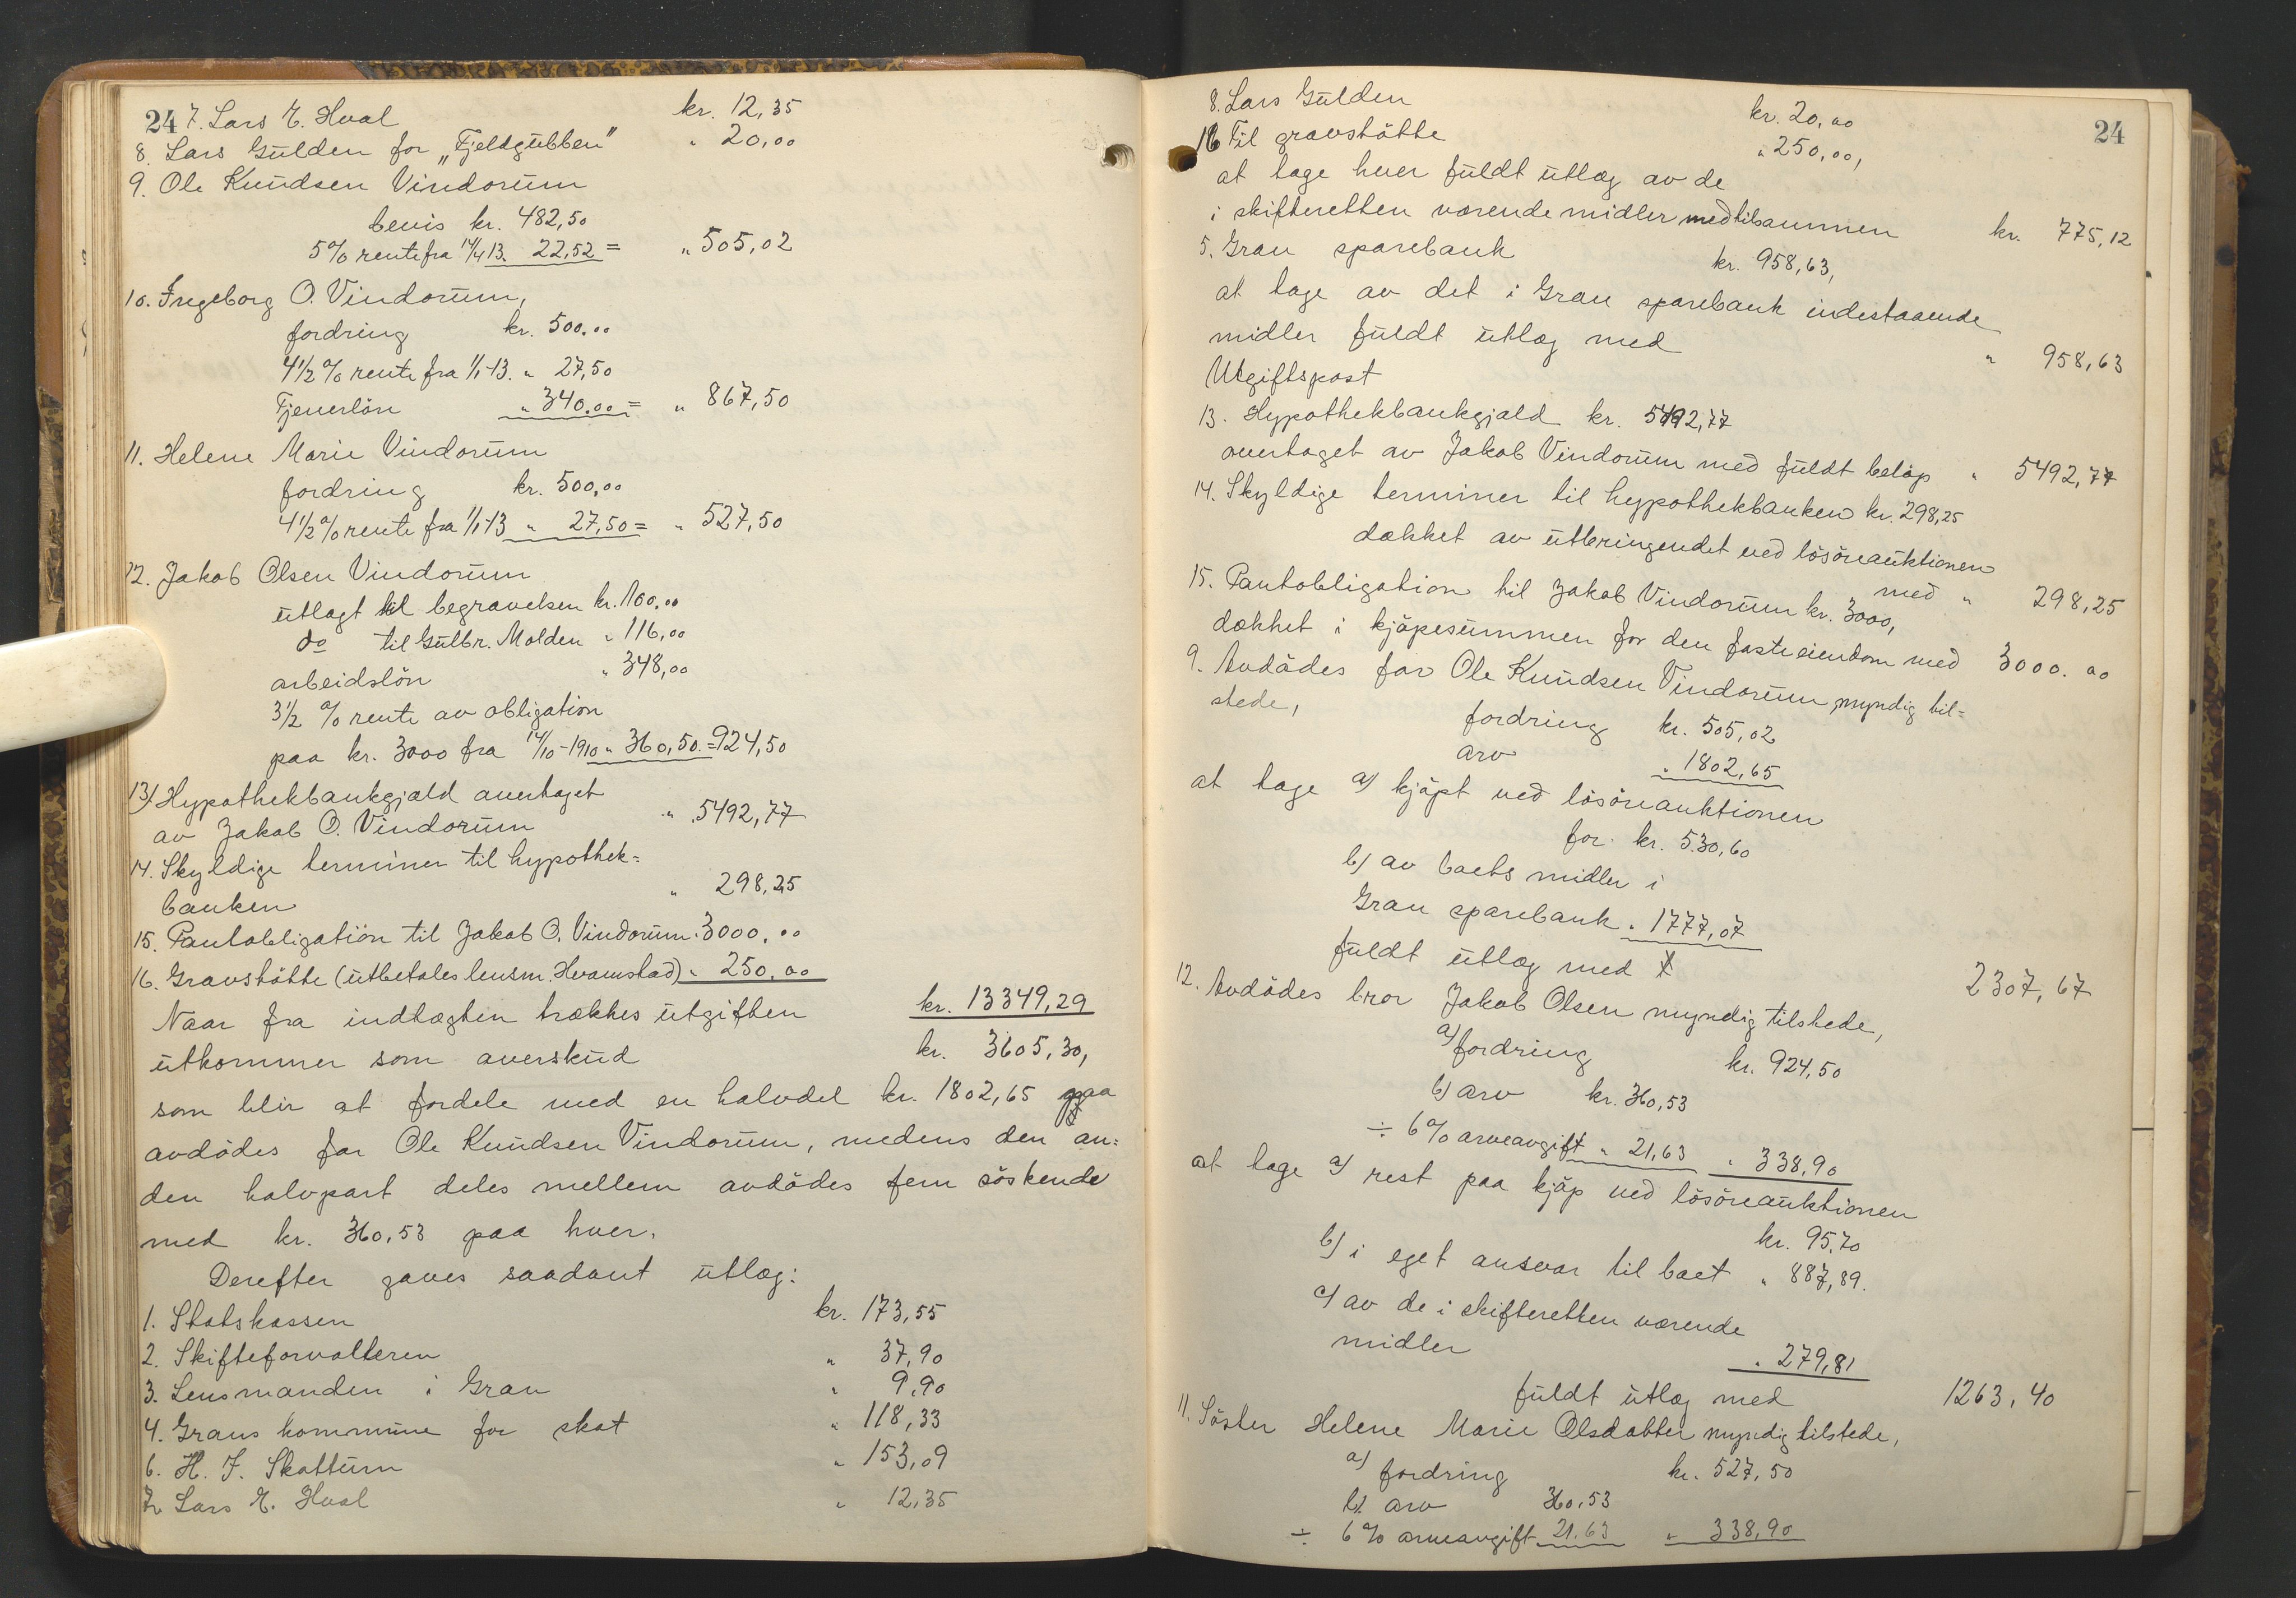 24
7. Lars E. Hval kr. 12,35
8. Lars Gulden for „Fjeldgubben" " 20,00
9. Ole Knudsen Vindorum
bevis kr. 482,50
5% rente fra 14/4 13. 22,52 = " 505,02
10. Ingeborg O. Vindorum,
fordring kr. 500.00
4 1/2 % rente fra 1/1-13. " 27,50
Tjenerlön " 340.00 = " 867,50
11. Helene Marie Vindorum
fordring kr. 500,00
4 1/2 % rente fra 1/1-13 " 27,50 = " 527,50
12. Jakob Olsen Vindorum
utlagt til begravelsen kr. 100,00
do til Gulbr. Molden " 116,00
arbeidslön " 348,00
3 1/2 % rente av obligation
paa kr. 3000 fra 14/10-1910 " 360,50. = 924,50
13. Hypothekbankgjæld overtaget
av Jakob O. Vindorum " 5492,77
14. Skyldige terminer til hypothek=
banken " 298,25
15. Pantobligation til Jakob O. Vindorum. 3000,00
16. Gravstötte (utbetales lensm. Hvamstad) " 250,00
kr. 13349,29
Naar fra indtægten trækkes utgiften
utkommer som overskud kr. 3605,30,
som blir at fordele med en halvdel kr. 1802,65 paa
avdödes far Ole Knudsen Vindorum, medens den an=
den halvpart deles mellem avdödes fem söskende
med kr. 360,53 paa hver.
Derefter gaves saadant utlæg:
1. Statskassen kr. 173,55
2. Skifteforvalteren " 37,90
3. Lensmanden i Gran " 9,90
4. Grans kommune for skat " 118,33
6. H. J. Skattum " 153,09
7. Lars E. Hval " 12,35
24
8. Lars Gulden kr. 20,00
16 Til gravstötte " 250,00,
at tage hver fuldt utlæg av de
i skifteretten værende midler med tilsammen kr. 775,12
5. Gran sparebank kr. 958,63,
at tage av det i Gran sparebank indestaaende
midler fuldt utlæg med " 958,63
Utgiftspost
13. Hypothekbankgjæld kr. 5492,77
overtaget av Jakob Vindorum med fuldt belöp " 5492,77
14. Skyldige terminer til hypothekbanken kr. 298,25
dækket av utbringendet ved lösöreauktionen
med " 298,25
15. Pantobligation til Jakob Vindorum kr. 3000,
dækket i kjöpesummen for den faste eiendom med 3000.00
9. Avdödes far Ole Knudsen Vindorum myndig til=
stede,
fordring kr. 505,02
arv " 1802,65
at tage a) kjöpt ved lösöreauktionen
for kr. 530,60
b) av boets midler i
Gran sparebank " 1777,07
fuldt utlæg med 2307,67
12. Avdödes bror Jakob Olsen myndig tilstede,
a) fordring kr. 924,50
b) arv kr. 360,53
÷ 6% arveavgift " 21,63 " 338,90
at tage a) rest paa kjöp ved lösöreauktionen
kr. 95,70
b) i eget ansvar til boet " 887,89.
c) av de i skifteretten værende
midler " 279,81
fuldt utlæg med 1263,40
11. Söster Helene Marie Olsdatter myndig tilstede,
a) fordring kr. 527,50
b) arv 360,53
÷ 6% arveavgift 21,63 " 338,90